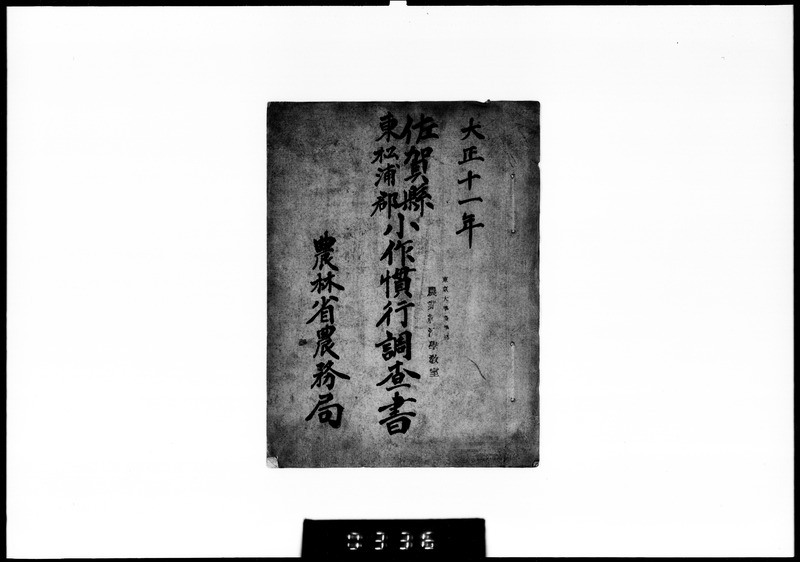 大正十一年
佐賀縣
東松浦郡
小作慣行調查書
東京大學農學部
農業經濟學教室
農林省農務局
0336